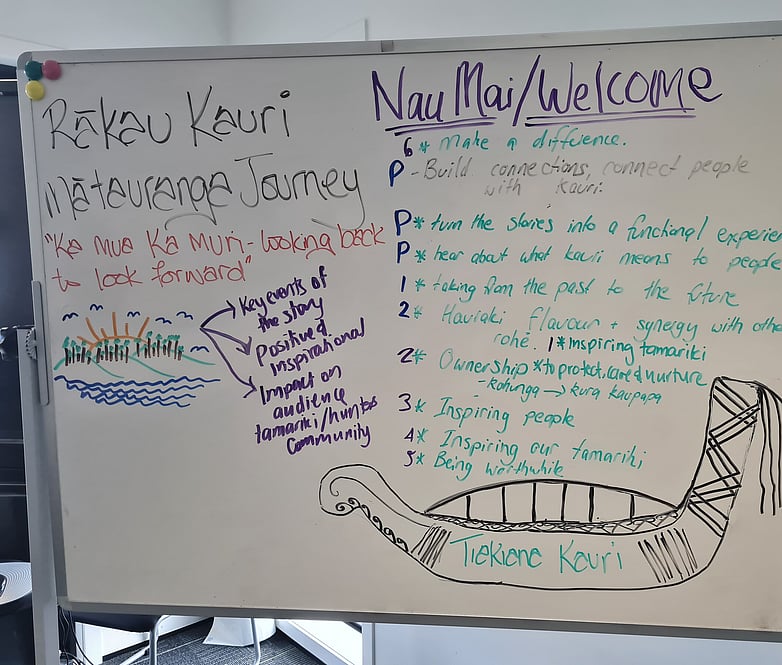 Rākau Kauri
Mātauranga Journey
"Ka Mua Ka Muri - looking back
to look forward"
Key events of
the story
Positive &
inspirational
Impact on
audience
tamariki/hunters
Community
Nau Mai/Welcome
6 * Make a diffuence.
P - Build connections, connect people
with kauri.
P * turn the stories into a functional experien
P * hear about what kauri means to people
1 * taking from the past to the future
2 * Hauraki flavour + synergy with othe
rohe. 1 * Inspiring tamariki
2 * Ownership * to protect, care & nurture
- kohunga → kura kaupapa
3 * Inspiring people
4 * Inspiring our tamariki
5 * Being worthwhile
Tiekiene Kauri